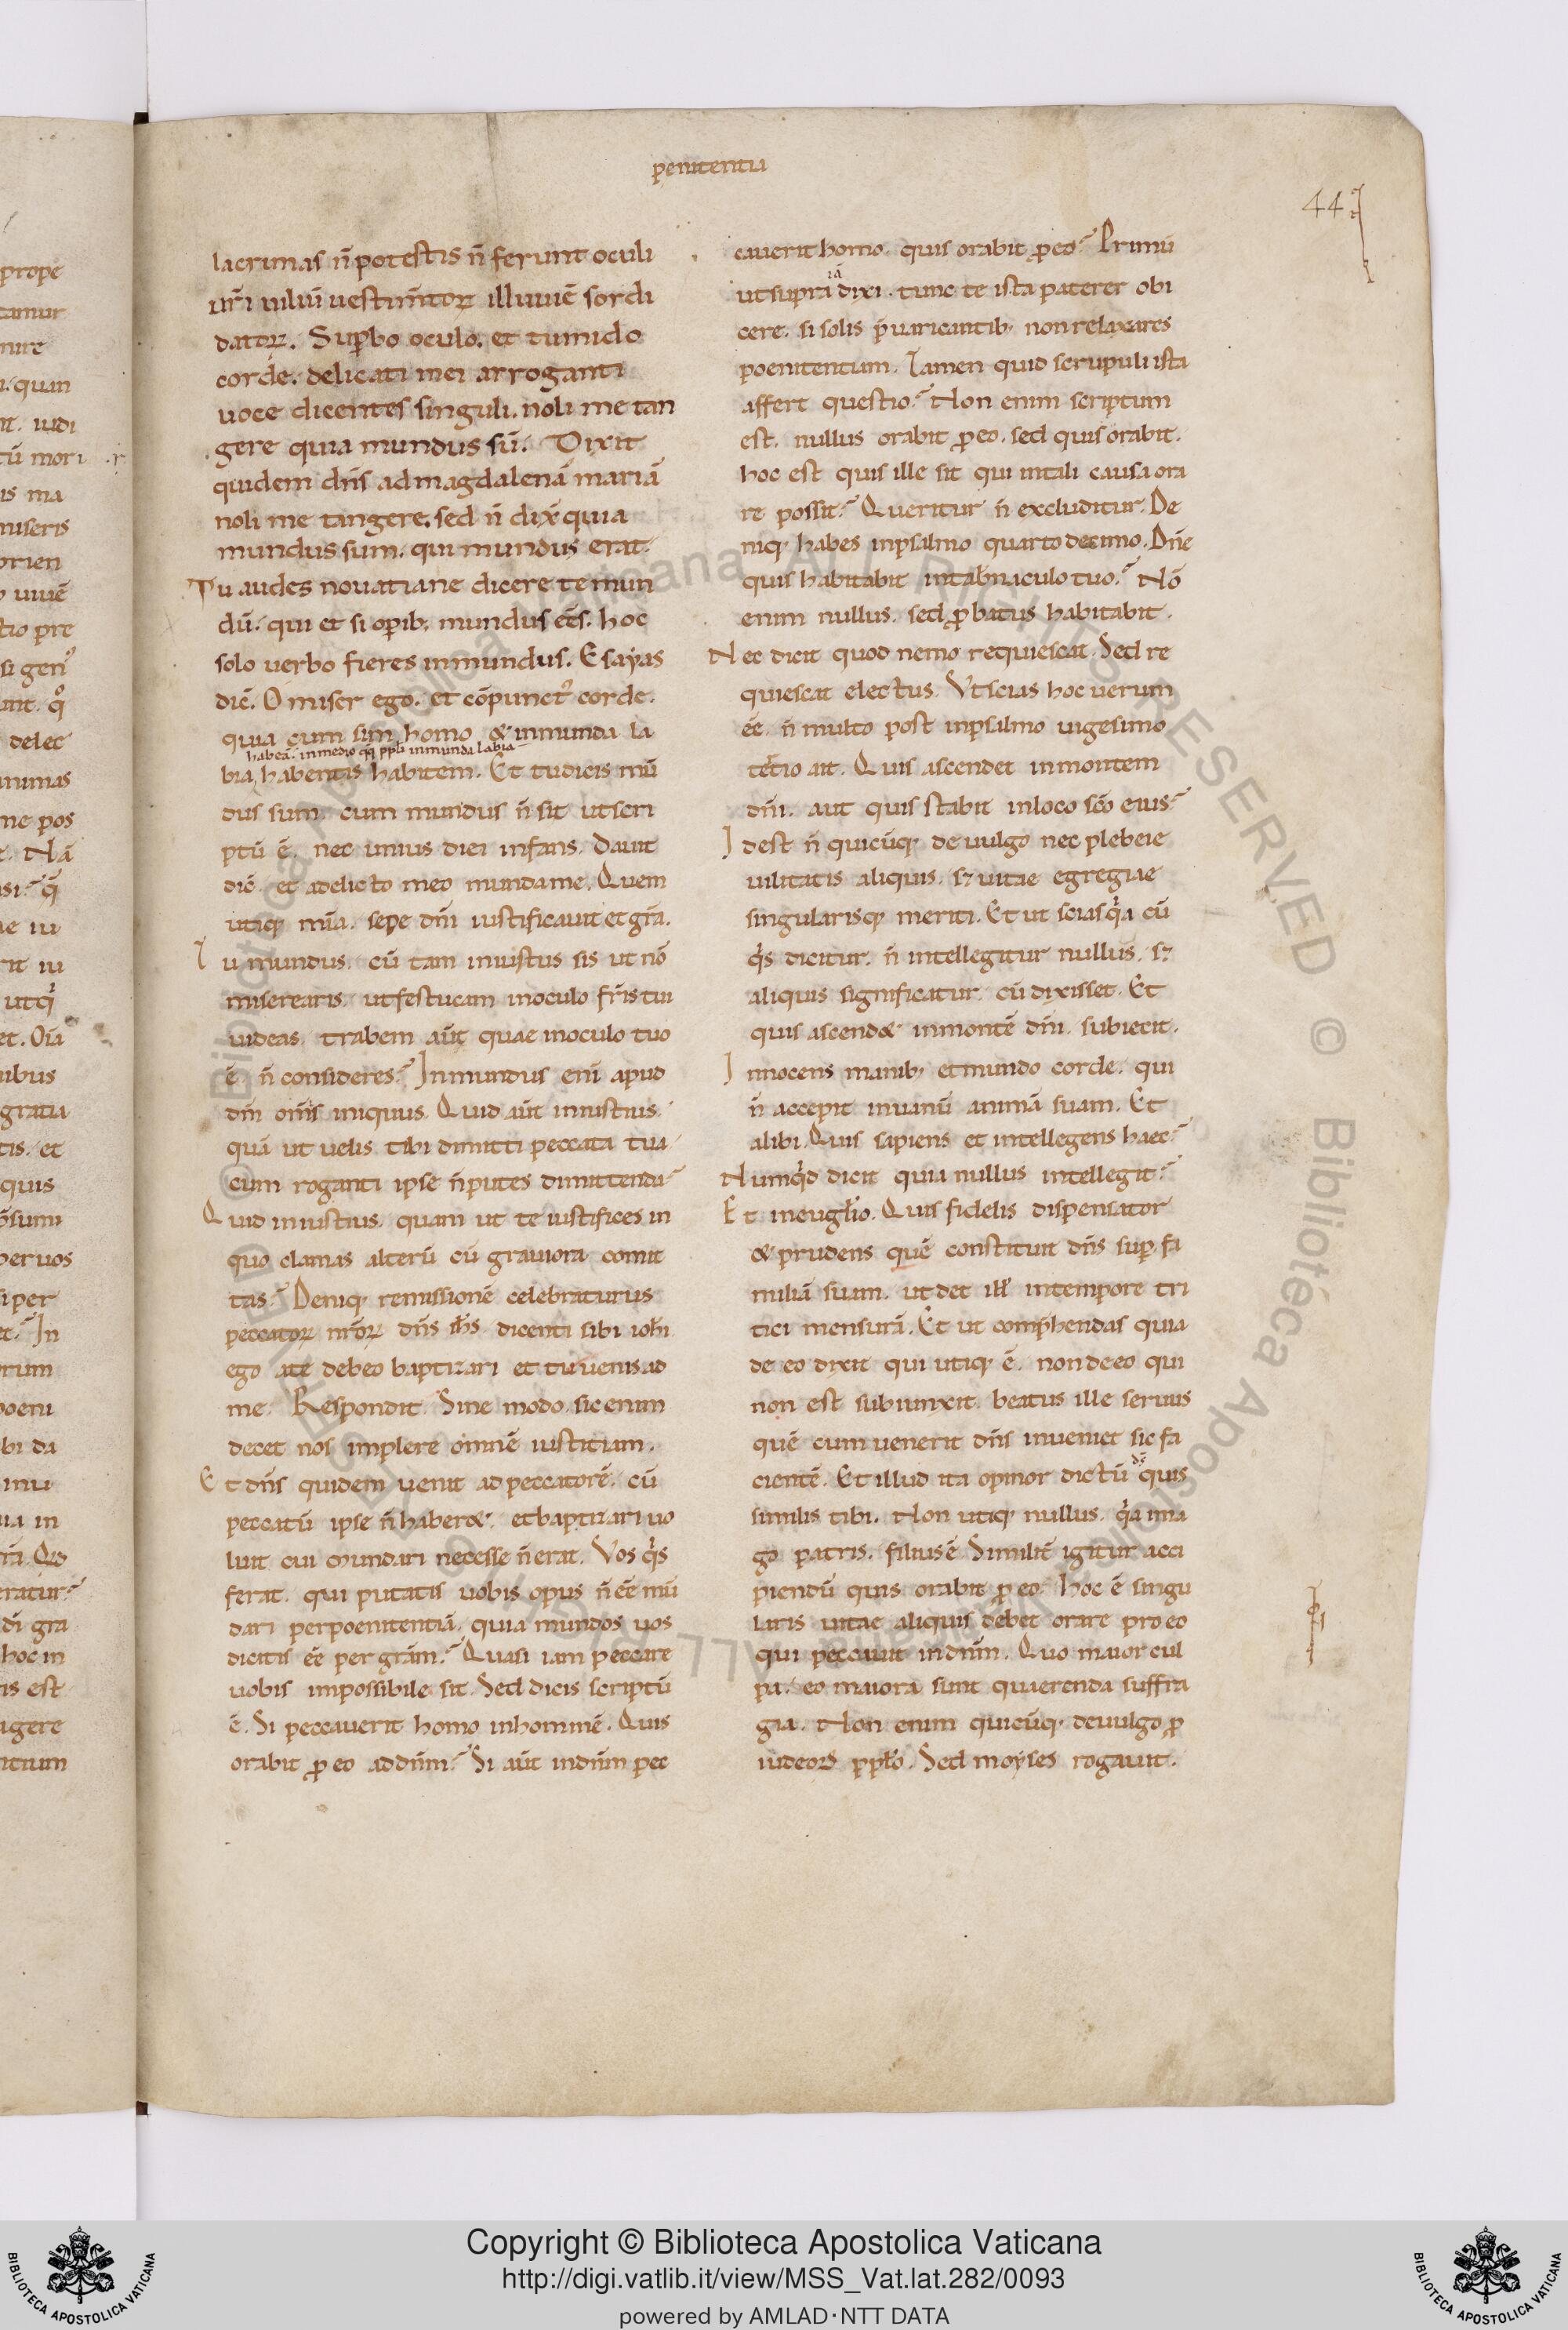 penitentia
44
lacrimas n̄ potestis n̄ ferunt oculi
ur̄i uiliū uestim̄torꝝ illuuiē sordi
datorꝝ. Suꝑbo oculo. et tumido
corde. delicati mei arroganti
uoce dicentes singuli. noli me tan
gere quia mundus sū. Dixit
quidem dn̄s ad magdalenā mariā
noli me tangere. sed n̄ dix̄ quia
mundus sum. qui mundus erat.
Tu audes nouatiane dicere te mun
dū. qui et si opib; mundus eēs. hoc
solo uerbo fieres inmundus. Esayas
dic̄. O miser ego. et cōpunct᾽ corde.
quia cum sim homo & inmunda la
habeā. in medio q̄q ppl̄i inmunda labia
bia habentis habitem. Et tu dicis mū
dus sum. cum mundus n̄ sit ut scri
ptū ē. nec unius diei infans. Dauit
dic̄ et a delicto meo munda me. Quem
utiq; mīa. sepe dn̄i iustificauit et gr̄a.
Tu mundus. cū tam iniustus sis ut nō
miserearis. ut festucam in oculo fr̄is tui
uideas. trabem aūt quae in oculo tuo
ē n̄ consideres? Inmundus enī apud
dm̄ omīs iniquus. Quid aūt iniustius.
quā ut uelis tibi dimitti peccata tua.
cum roganti ipse n̄ putes dimittenda?
Quid iniustius. quam ut te iustifices in
quo clamas alterū cū grauiora comit
tas? Deniq; remissionē celebraturus
peccatorꝝ nr̄orꝝ dn̄s ih̄s dicenti sibi ioh̄i
ego a te debeo baptizari et tu uenis ad
me. Respondit. Sine modo. sic enim
decet nos implere omnē iustitiam.
Et dn̄s quidem uenit ad peccatorē. cū
peccatū ipse n̄ haber&. et baptizari uo
luit cui mundari necesse n̄ erat. Vos q̇s
ferat. qui putatis uobis opus n̄ eē mū
dari per poenitentiā. quia mundos uos
dicitis eē per gr̄am? Quasi iam peccare
uobis impossibile sit. Sed dicis scriptū
ē. Si peccauerit homo in hominē. Quis
orabit ꝓ eo ad dn̄m? Si aūt in dn̄m pec
cauerit homo. quis orabit ꝓ eo? Primū
iā
ut supra dixi. tunc te ista paterer obi
cere. si solis p̄uaricantib; non relaxares
poenitentiam. Tamen quid scrupuli ista
affert questio? Non enim scriptum
est. nullus orabit ꝓ eo. sed quis orabit.
hoc est quis ille sit qui in tali causa ora
re possit? Queritur n̄ excluditur. De
niq; habes in psalmo quarto decimo. Dn̄e
quis habitabit in tab̄naculo tuo? Nō
enim nullus. sed ꝓbatus habitabit.
Nec dicit quod nemo requiescat. Sed re
quiescat electus. Vt scias hoc uerum
eē. n̄ multo post in psalmo uigesimo
tēio ait. Quis ascendet in montem
dn̄i. aut quis stabit in loco sc̄o eius?
Idest n̄ quicūq; de uulgo nec plebeie
uilitatis aliquis. sꝫ uitae egregiae
singularisq; meriti. Et ut scias q̇a cū
q̇s dicitur. n̄ intellegitur nullus. sꝫ
aliquis significatur. cū dixisset. Et
quis ascend& in montē dn̄i. subiecit.
Innocens manib; et mundo corde. qui
n̄ accepit in uanū animā suam. Et
alibi. Quis sapiens et intellegens haec?
Numq̇d dicit quia nullus intellegit?
Et in eugl̄io. Quis fidelis dispensator
& prudens quē constituit dn̄s suꝑ fa
miliā suam. ut det ill̄ in tempore tri
tici mensurā. Et ut comp̄hendas quia
de eo dixit qui utiq; ē. non de eo qui
non est subiunxit. beatus ille seruus
quē cum uenerit dn̄s inueniet sic fa
cientē. Et illud ita opinor dictū ds̄ quis
similis tibi. Non utiq; nullus. q̇a ima
go patris. filius ē. Similit̄ igitur acci
piendū quis orabit ꝓ eo. hoc ē singu
laris uitae aliquis debet orare pro eo
qui peccauit in dn̄m. Quo maior cul
pa. eo maiora sunt quaerenda suffra
gia. Non enim quicūq; de uulgo ꝓ
iudeorꝝ ppl̄o. Sed moyses rogauit.
Copyright © Biblioteca Apostolica Vaticana
http://digi.vatlib.it/view/MSS_Vat.lat.282/0093
powered by AMLAD·NTT DATA